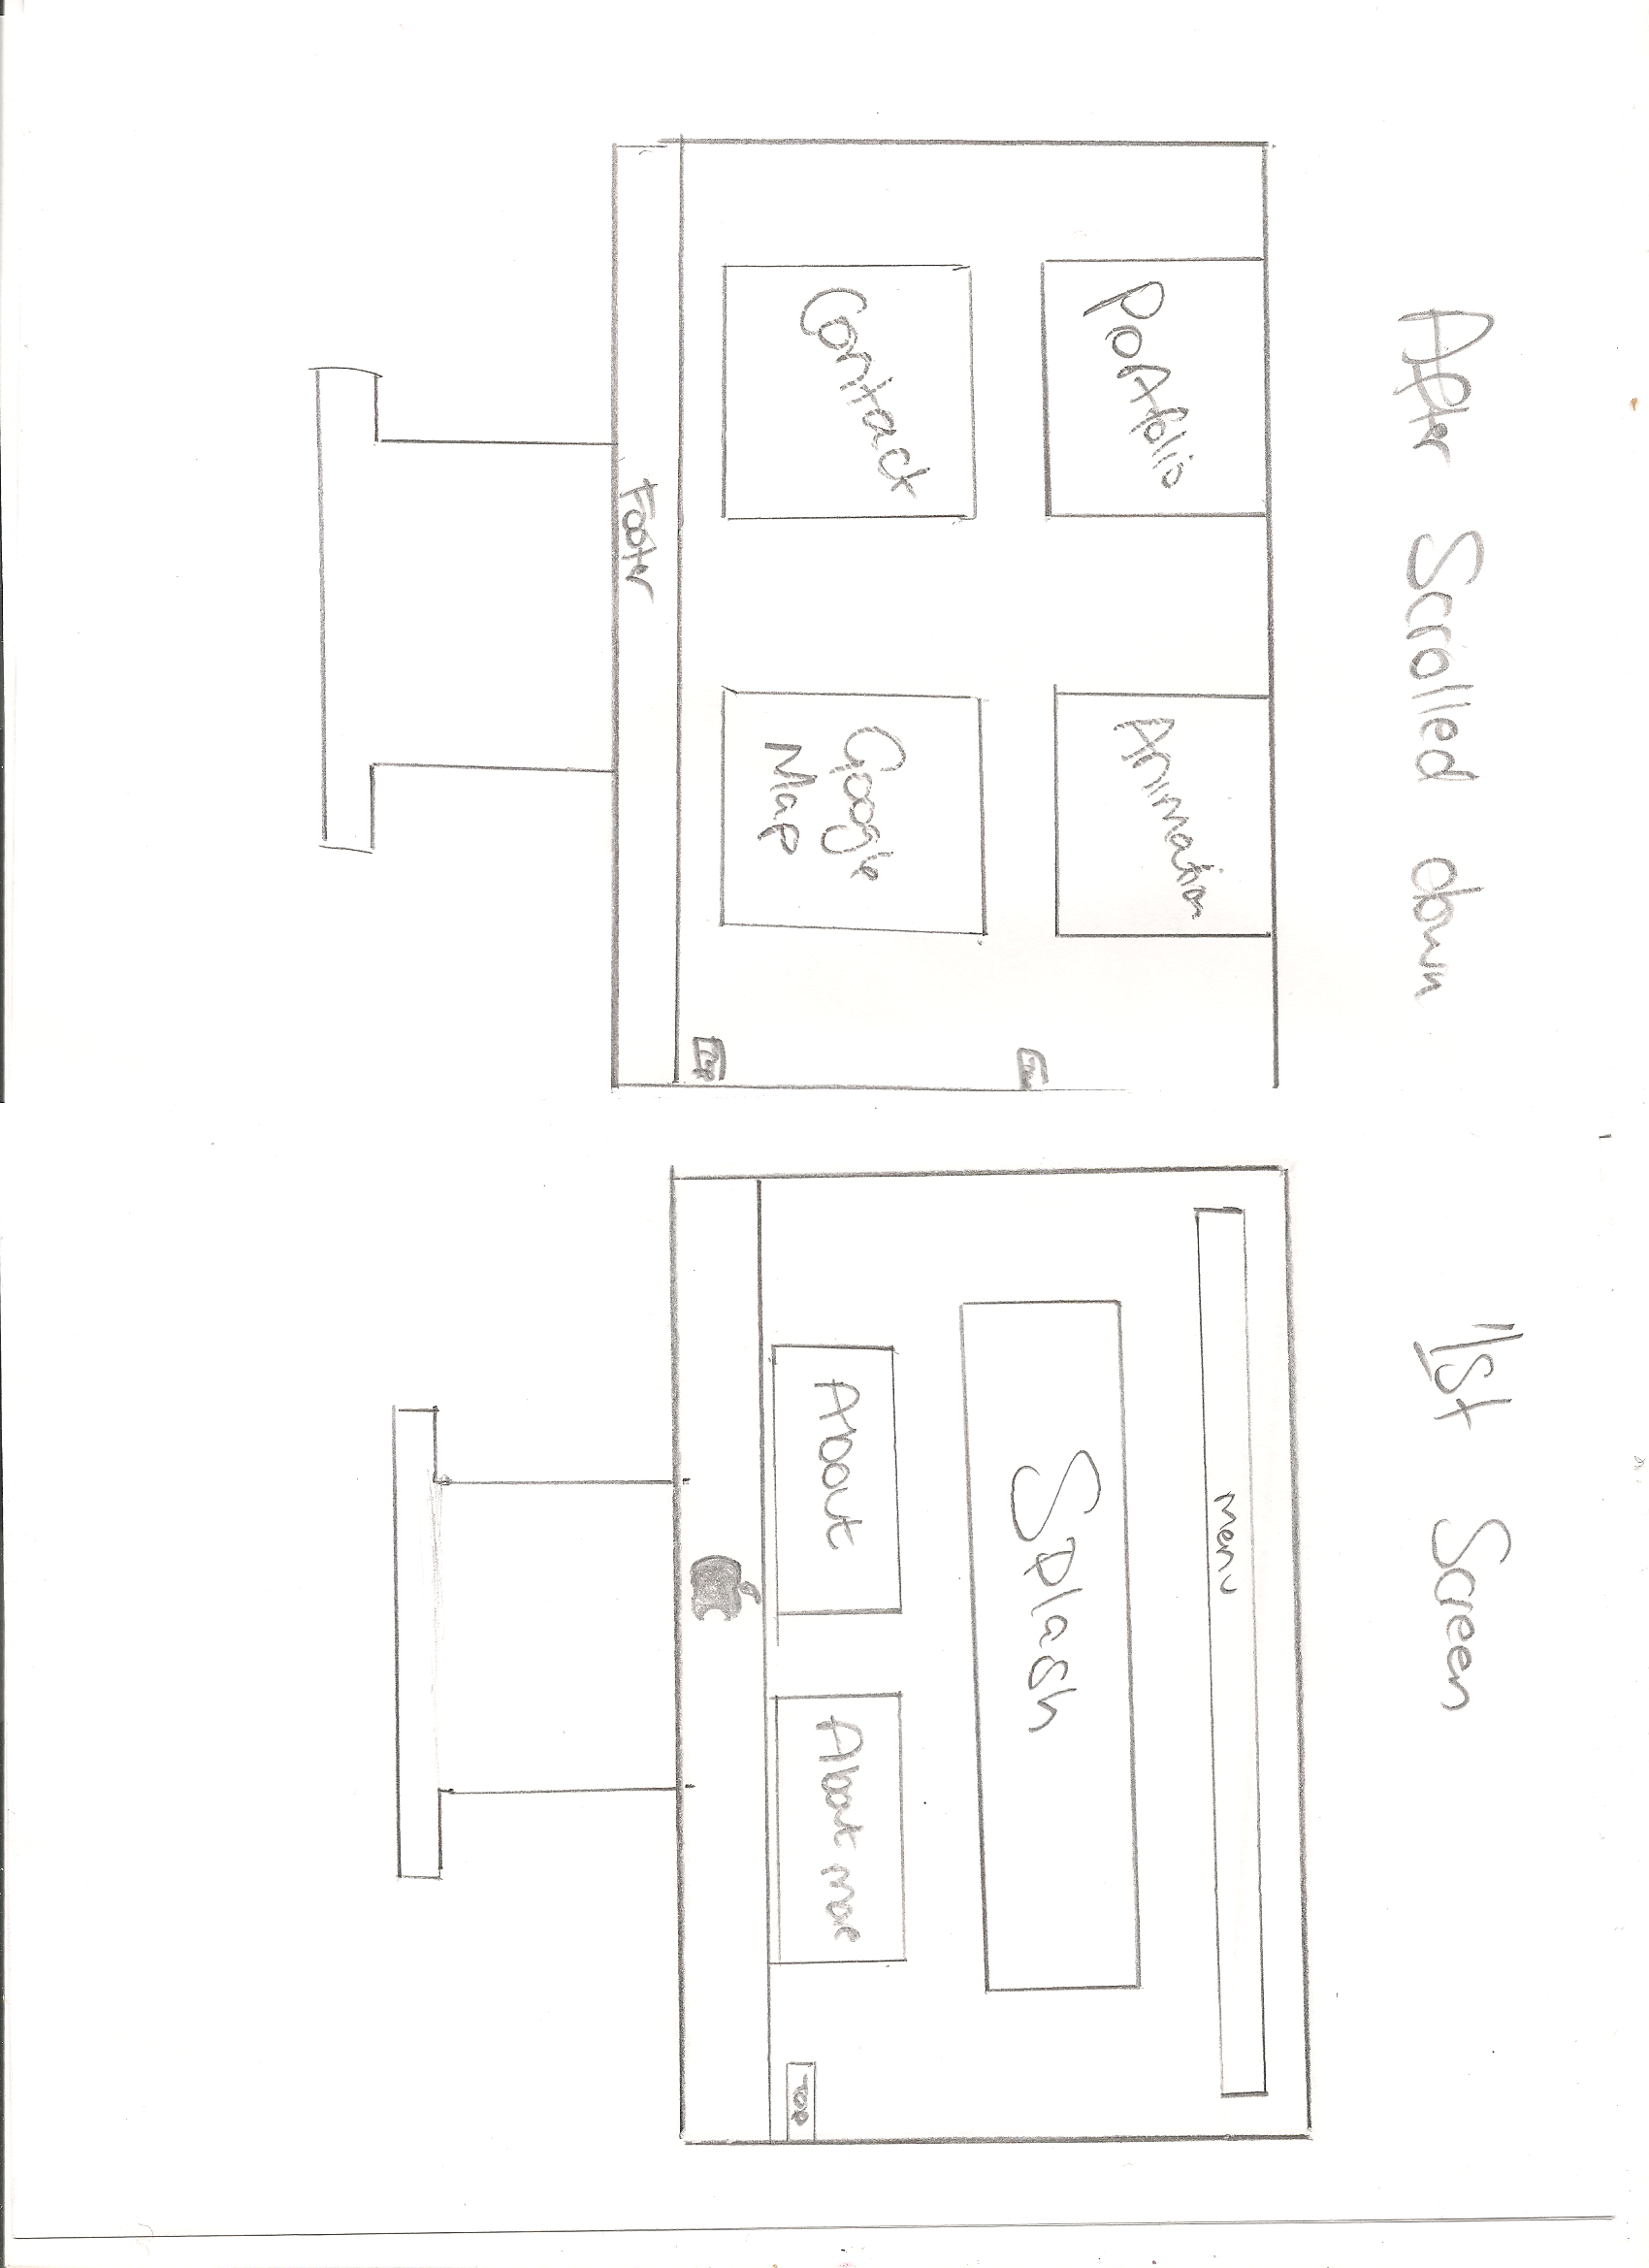 After Scrolled down
Portfolio
Animation
Contact
Google
Map
Top
Footer
1st Screen
Menu
Splash
About
About me
Top